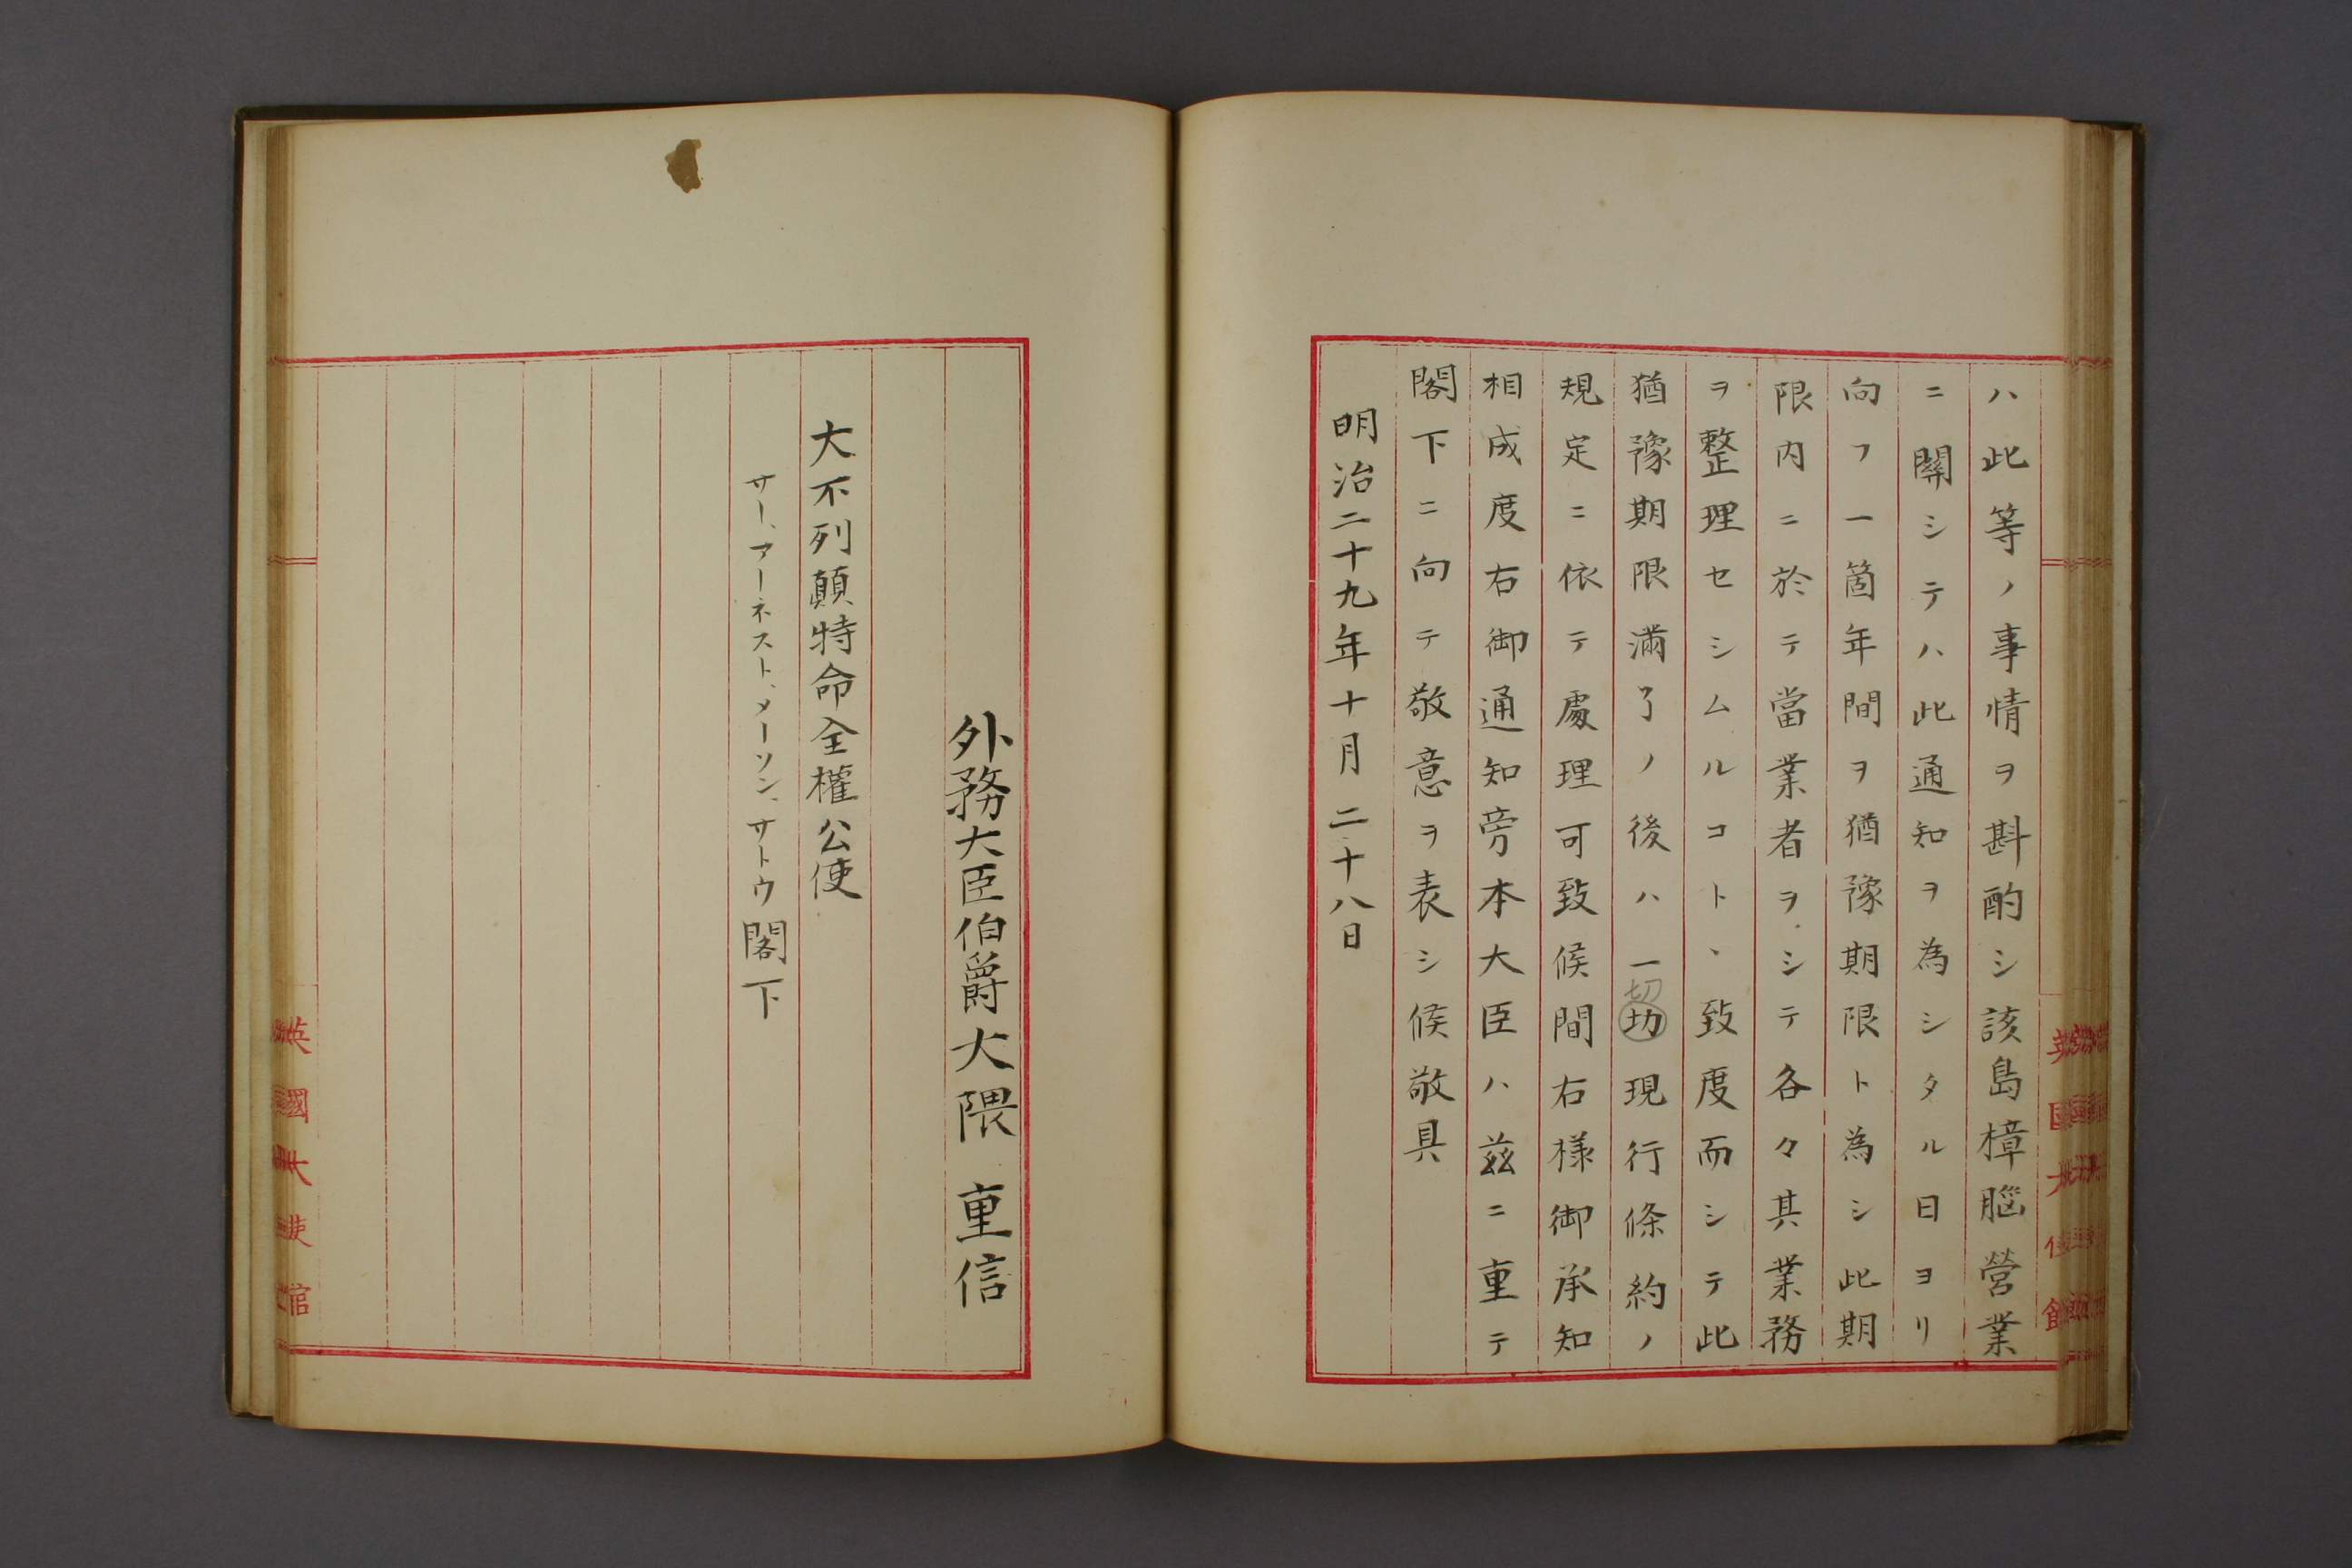 ハ此等ノ事情ヲ斟酌シ該島樟腦營業
ニ關シテハ此通知ヲ為シタル日ヨリ
向フ一箇年間ヲ猶豫期限ト為シ此期
限内ニ於テ當業者ヲシテ各々其業務
ヲ整理セシムルコトヽ致度而シテ此
猶豫期限滿了ノ後ハ一切現行條約ノ
切
規定ニ依テ處理可致候間右様御承知
相成度右御通知旁本大臣ハ茲ニ重テ
閣下ニ向テ敬意ヲ表シ候敬具
明治二十九年十月二十八日
外務大臣伯爵大隈重信
大不列顛特命全權公使
サー、アーネスト、メーソン、サトウ閣下
英國大使館